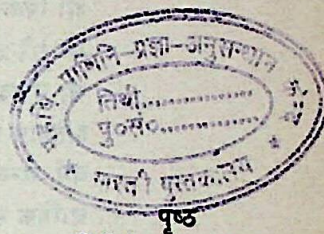 पाणिनि-प्रज्ञा-अनुसन्धान
तिथी..............
पु०सं०..............
* भारती पुस्तकालय *
पृष्ठ